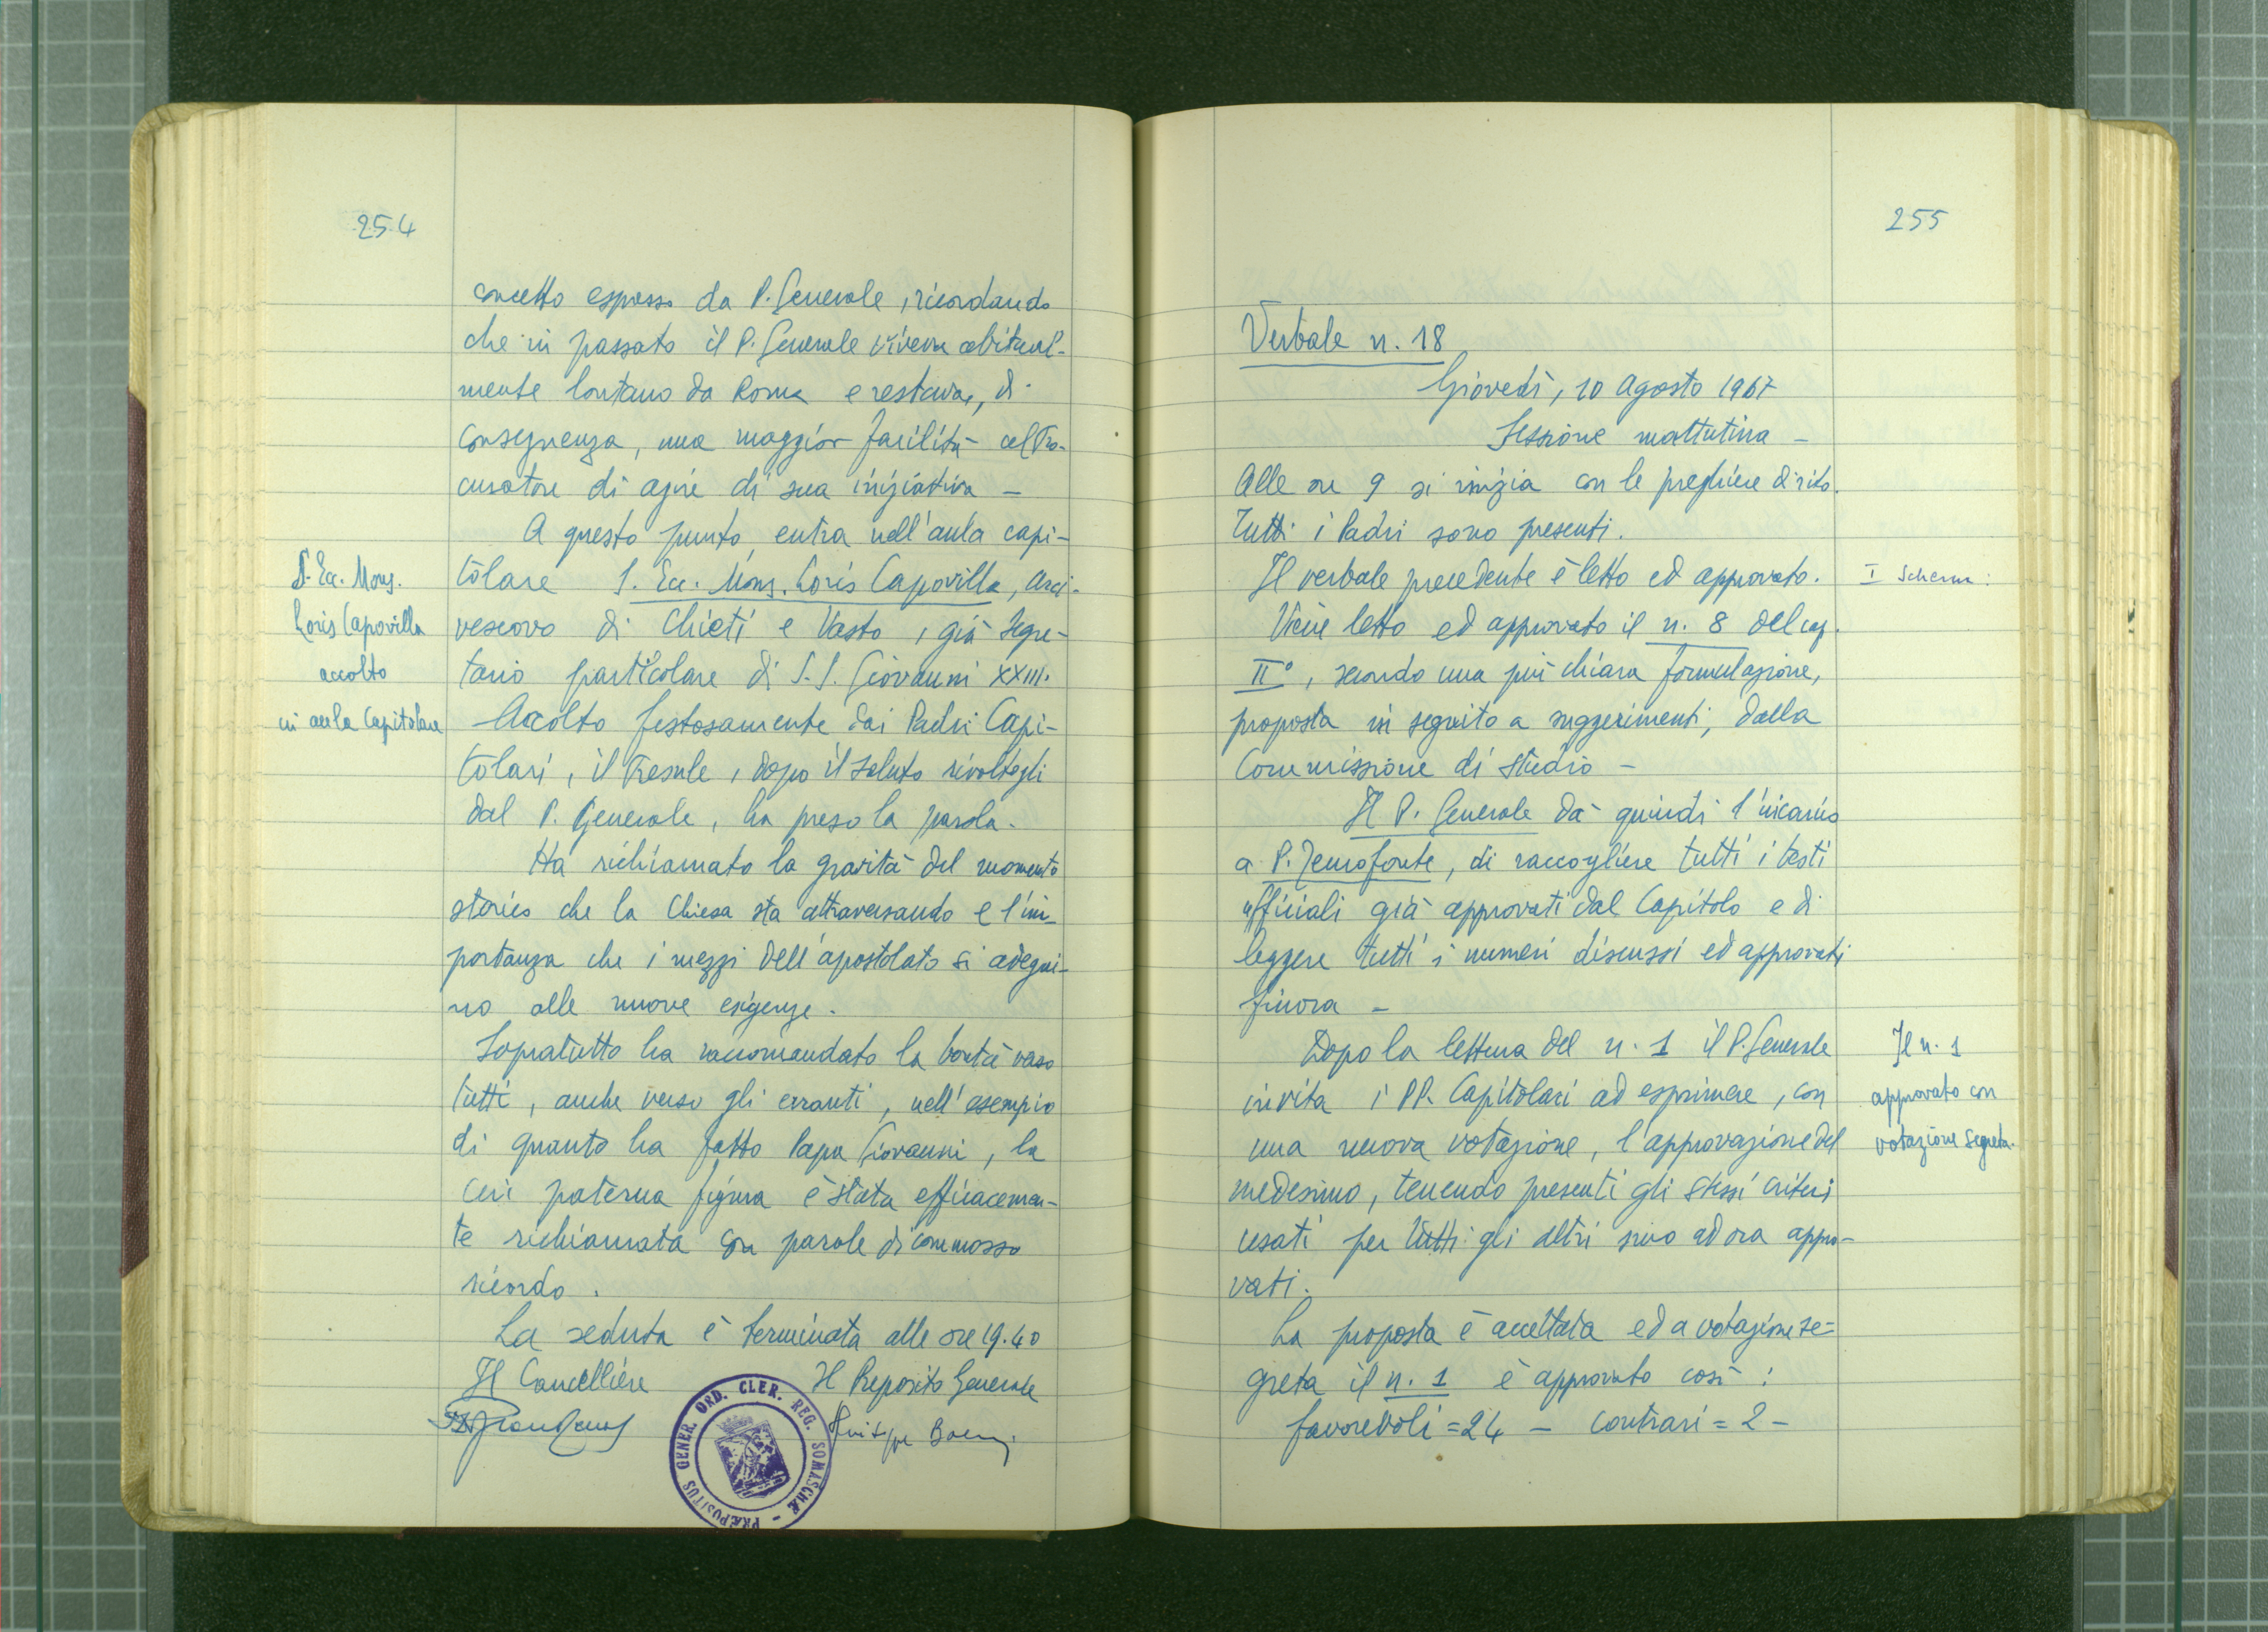 254
concetto espresso da P. Generale, ricordando
che in passato il P. Generale viveva abitual-
mente lontano da Roma e restava, di
conseguenza, una maggior facilità al Pro-
curatore di agire di sua iniziativa –
A questo punto, entra nell'aula capi-
S. Ecc. Mons.
Loris Capovilla
accolto
in aula Capitolare
tolare S. Ecc. Mons. Loris Capovilla, Arci-
vescovo di Chieti e Vasto, già Segre-
tario particolare di S.S. Giovanni XXIII.
Accolto festosamente dai Padri Capi-
tolari, il Presule, dopo il saluto rivoltogli
dal P. Generale, ha preso la parola.
Ha richiamato la gravità del momento
storico che la Chiesa sta attraversando e l'im-
portanza che i mezzi dell'apostolato si adegui-
no alle nuove esigenze.
Sopratutto ha raccomandato la bontà verso
tutti, anche verso gli erranti, nell'esempio
di quanto ha fatto Papa Giovanni, la
cui paterna figura è stata efficacemen-
te richiamata con parole di commosso
ricordo.
La seduta è terminata alle ore 19.40
Il Cancelliere Il Preposito Generale
PRÆPOSITUS GENER. ORD. CLER. REG. SOMASCHÆ
255
Verbale n. 18
Giovedì, 10 Agosto 1967
Sessione mattutina –
Alle ore 9 si inizia con le preghiere di rito.
Tutti i Padri sono presenti.
Il verbale precedente è letto ed approvato.
I Schema:
Viene letto ed approvato il n. 8 del cap.
II°, secondo una più chiara formulazione,
proposta in seguito a suggerimenti, dalla
Commissione di studio –
Il P. Generale dà quindi l'incarico
a P. Temofonte, di raccogliere tutti i testi
ufficiali già approvati dal Capitolo e di
leggere tutti i numeri discussi ed approvati
finora –
Dopo la lettura del n. 1 il P. Generale
Il n. 1
approvato con
votazione segreta.
invita i PP. Capitolari ad esprimere, con
una nuova votazione, l'approvazione del
medesimo, tenendo presenti gli stessi criteri
usati per tutti gli altri sino ad ora appro-
vati.
La proposta è accettata ed a votazione se=
greta il n. 1 è approvato così:
favorevoli = 24 – contrari = 2 –